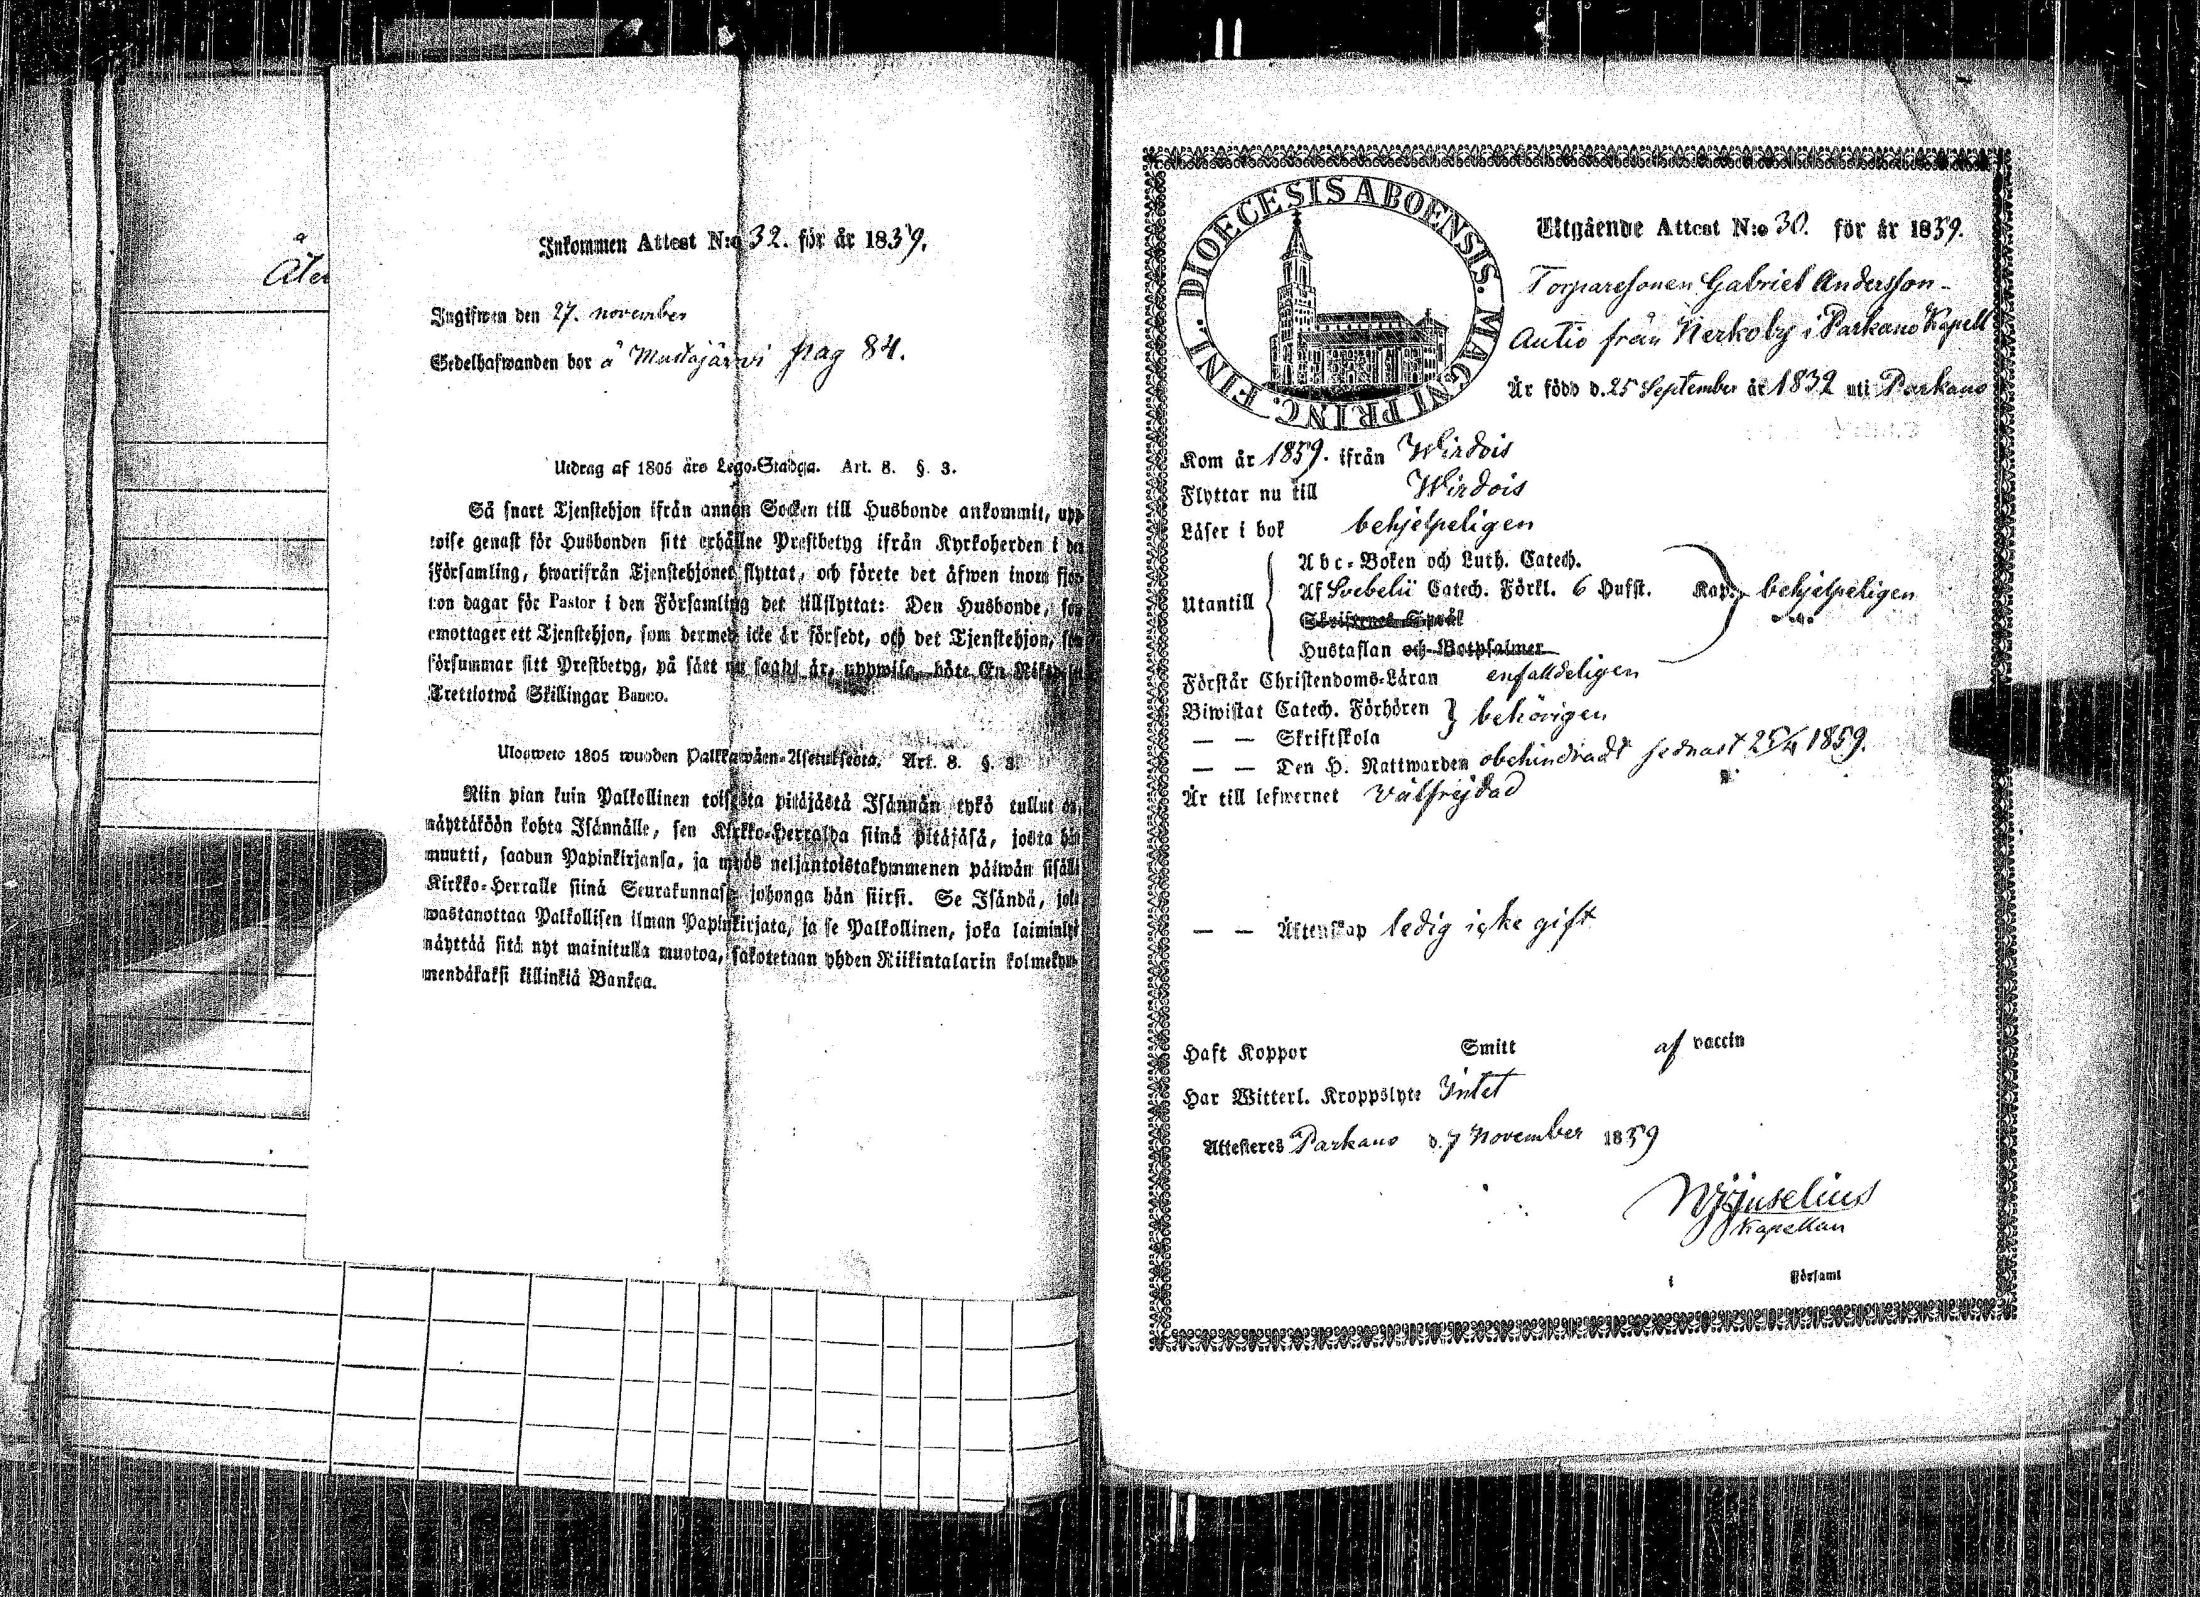 Åter
Inkommen Attest N:o 32. för år 1859.
Ingifwen den 27. november
Sedelhafwanden bor å Mustajärvi pag 84.
Utdrag af 1805 års Lego-Stadga. Art. 8. §. 3.
Så snart Tjenstehjon ifrån annan Socken till Husbonde ankommit, upp
wise genast för Husbonden sitt erhållne Prestbetyg ifrån Kyrkoherden i den
Församling, hwarifrån Tjenstehjonet flyttat, och förete det äfwen inom fjor
ton dagar för Pastor i den Församling det tillflyttat: Den Husbonde, som
emottager ett Tjenstehjon, som dermed icke är försedt, och det Tjenstehjon, som
försummar sitt Prestbetyg, på sätt nu sagdt är, uppwisa, böte En Riksdaler
Trettiotwå Skillingar Banco.
Ulosweto 1805 wuoden Palkkawäen-Asetuksesta. Art. 8. §. 3.
Niin pian kuin Palkollinen toisesta pitäjästä Isännän tykö tullut on,
näyttäköön kohta Isännälle, sen Kirkko-Herralda siinä pitäjäsä, josta hän
muutti, saadun Papinkirjansa, ja myös neljäntoistakymmenen päiwän sisällä
Kirkko-Herralle siinä Seurakunnasa johonga hän siirsi. Se Isändä, joka
wastanottaa Palkollisen ilman Papinkirjata, ja se Palkollinen, joka laiminlyö
näyttää sitä nyt mainitulla muotoa, sakotetaan yhden Riikintalarin kolmekym-
mendäkaksi killinkiä Bankoa.
DIOECESIS ABOENSIS. MAGNI PRINC. FINL.
Utgående Attest N:o 30. för år 1859.
Torparesonen Gabriel Andersson-
Autio från Nerkoby i Parkano Kapell
Är född d. 25 September år 1832 uti Parkano
Kom år 1859. ifrån Wirdois
Flyttar nu till Wirdois
Läser i bok behjelpeligen
Utantill
Abc-Boken och Luth. Catech.
Af Svebelii Catech. Förkl. 6 Hufst. Kap. behjelpeligen
Skriftenes Språk
Hustaflan och Botpsalmer
Förstår Christendoms-Läran enfalldeligen
Biwistat Catech. Förhören } behörigen
— — Skriftskola
— — Den H. Nattwarden obehindradt sednast 25/4 1859.
Är till lefwernet välfrejdad
— — Äktenskap ledig icke gift
Haft Koppor Smitt af vaccin
Har Witterl. Kroppslyte Intet
Attesteres Parkano d. 7 November 1859
Kapellan
i Församl